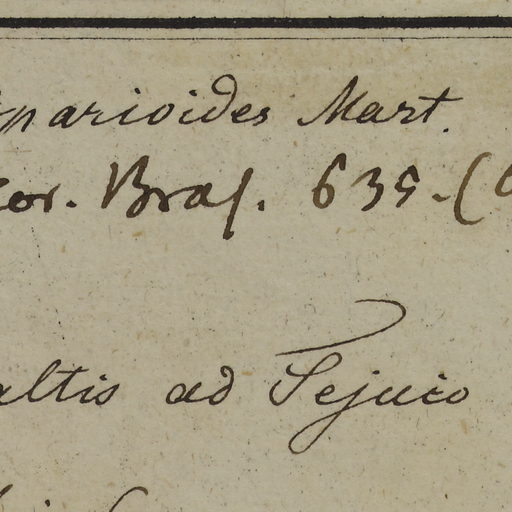 parioides Mart.
or. Bras. 639. (
altis ad Tejuco